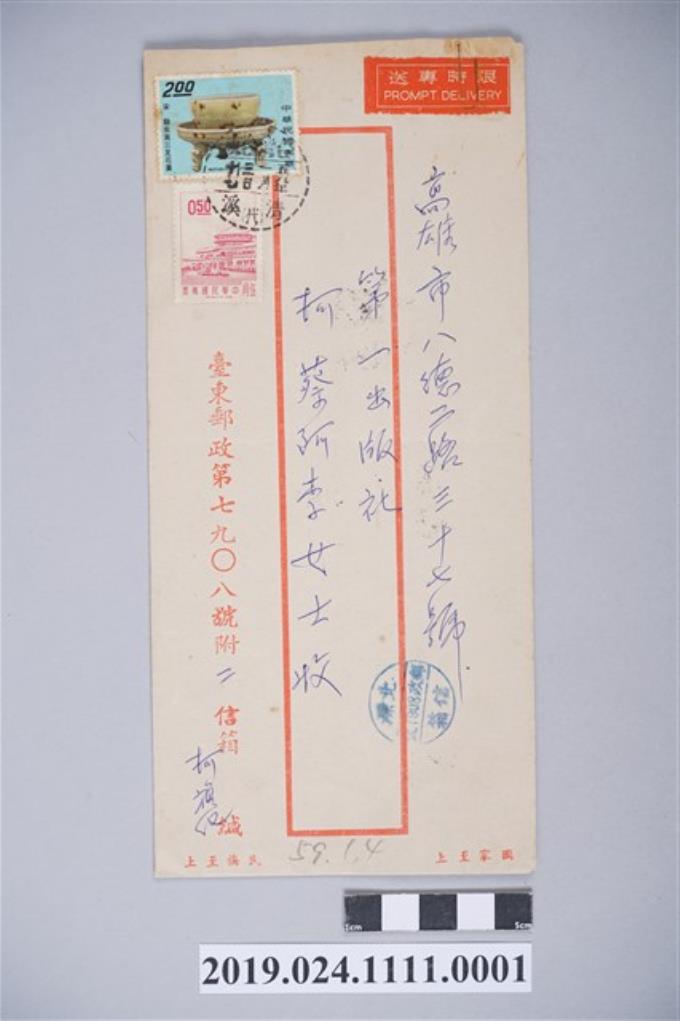 限時專送
PROMPT DELIVERY
2.00
中華民國郵票
0.50
中華民國郵票
清溪
(代)
高雄市八德二路三十七號
第一出版社
柯蔡阿李女士收
臺東郵政第七九〇八號附二信箱
柯旗化 緘
國家至上
民族至上
59.1.4
1cm
5cm
2019.024.1111.0001